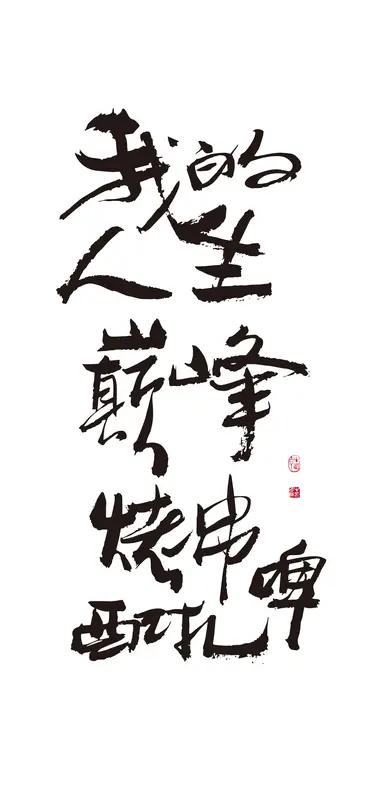 我的
人生
巅峰
烤串
配扎啤